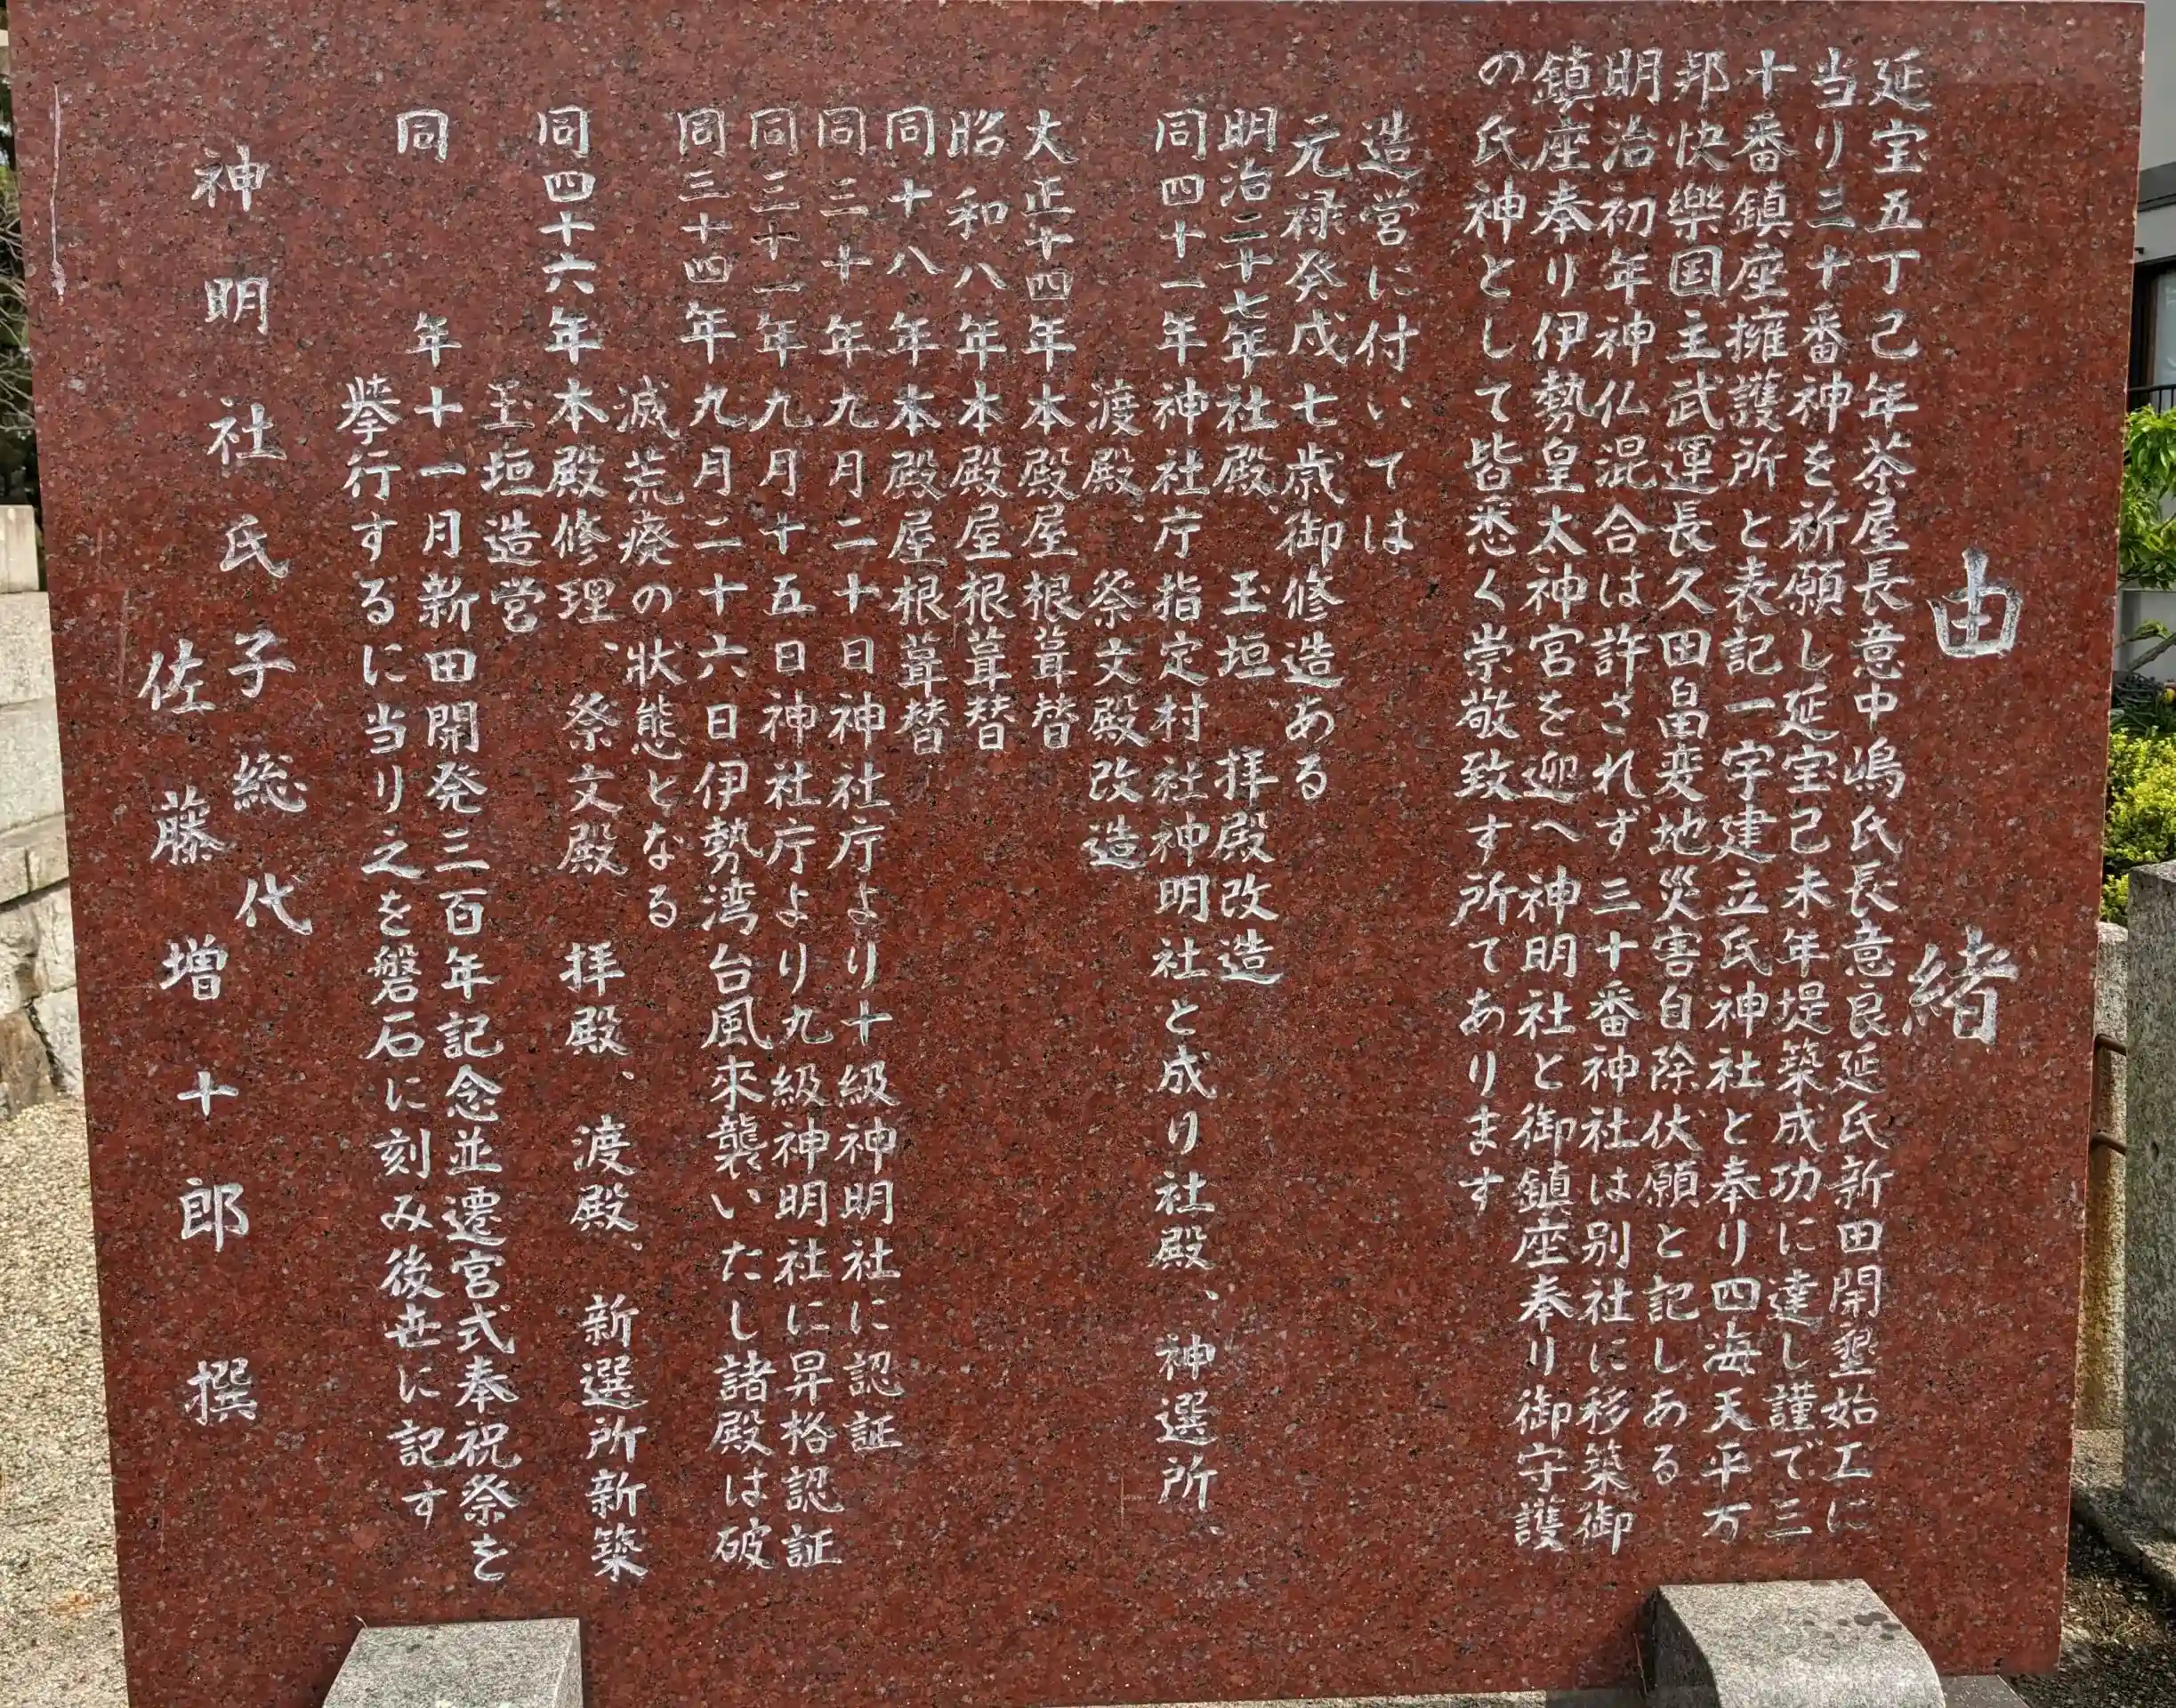 由緒
延宝五丁己年茶屋長意中嶋氏長意良延氏新田開墾始工に
当り三十番神を祈願し延宝己未年堤築成功に達し謹で三
十番鎮座擁護所と表記一宇建立氏神社と奉り四海天平万
邦快樂国主武運長久田畠変地災害自除伏願と記しある
明治初年神仏混合は許されず三十番神社は別社に移築御
鎮座奉り伊勢皇太神宮を迎へ神明社と御鎮座奉り御守護
の氏神として皆悉く崇敬致す所てあります
造営に付いては
元禄癸戌七歳御修造ある
明治二十七年社殿、玉垣 拝殿改造
同四十一年神社庁指定村社神明社と成り社殿、神選所、
渡殿、祭文殿改造
大正十四年本殿屋根葺替
昭和八年本殿屋根葺替
同十八年本殿屋根葺替
同三十年九月二十日神社庁より十級神明社に認証
同三十一年九月十五日神社庁より九級神明社に昇格認証
同三十四年九月二十六日伊勢湾台風来襲いたし諸殿は破
滅荒廃の状態となる
同四十六年本殿修理、祭文殿 拝殿、渡殿、新選所新築
玉垣造営
同 年十一月新田開発三百年記念並遷宮式奉祝祭を
挙行するに当り之を磐石に刻み後世に記す
神明社氏子総代
佐藤増十郎 撰